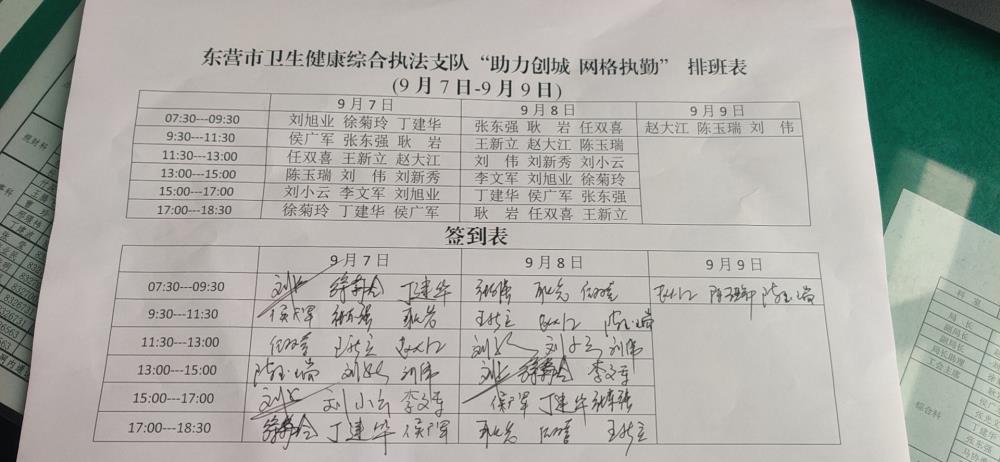 东营市卫生健康综合执法支队“助力创城 网格执勤” 排班表
(9月7日-9月9日)
9月7日 9月8日 9月9日
07:30---09:30 刘旭业 徐菊玲 丁建华 张东强 耿 岩 任双喜 赵大江 陈玉瑞 刘 伟
9:30---11:30 侯广军 张东强 耿 岩 王新立 赵大江 陈玉瑞
11:30---13:00 任双喜 王新立 赵大江 刘 伟 刘新秀 刘小云
13:00---15:00 陈玉瑞 刘 伟 刘新秀 李文军 刘旭业 徐菊玲
15:00---17:00 刘小云 李文军 刘旭业 丁建华 侯广军 张东强
17:00---18:30 徐菊玲 丁建华 侯广军 耿 岩 任双喜 王新立
签到表
9月7日 9月8日 9月9日
07:30---09:30 丁建华
9:30---11:30 侯广军 张东强 耿岩 王新立
11:30---13:00 任双喜 王新立 刘伟
13:00---15:00 陈玉瑞 刘伟 李文军
15:00---17:00 刘小云 李文军 侯广军 丁建华 张东强
17:00---18:30 丁建华 侯广军 耿岩 任双喜 王新立
科室
局长
副局长
局长助理
综合科